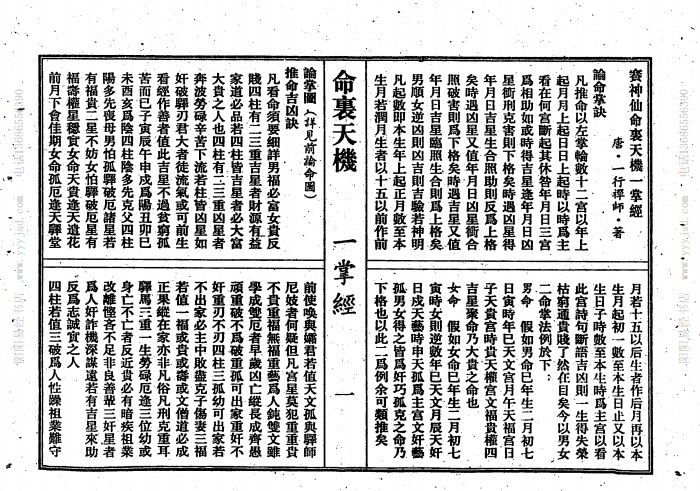 賽神仙命裏天機一掌經
唐·一行禪師·著
論命掌訣
凡推命以左掌輪數十二宮以年上
起月月上起日日上起時以時爲主
看在何宮斷起其休咎年月日三宮
爲相助如或時得吉星逢年月日凶
星衝刑克害則下格矣時遇凶星得
年月日吉星生合照助則反爲上格
矣時遇凶星又值年月日凶星衝合
照破害則爲下格矣時遇吉星又值
年月日吉星臨照生合則爲上格矣
男順女逆凶則凶吉則吉驗若神明
凡起數即本生年上起正月數至本
生月若潤月生者以十五以前作前
月若十五以后生者作后月再以本
生月起初一數至本生日止又以本
生日子時數至本生時爲主宮以看
此宮詩句斷語吉凶則一生得失榮
枯窮通貴賤了然在目矣今以男女
二命掌法例於下：
男命　假如男命已年生二月初七
日寅時年巳天文宮月午天福宮日
子天貴宮時貴天權宮文福貴權四
吉星聚命乃大貴之命也
女命　假如女命已年生二月初七
寅時女則逆數年巳天文月辰天奸
日戌天藝時申天孤爲主宮文奸藝
孤男女得之皆爲奸巧孤克之命乃
下格也以此二爲例余可類推矣
命裏天機　一掌經　一
論掌圖（詳見前論命圖）
推命吉凶訣
凡看命須要細詳男福必富女貴反
賤四柱有二三重吉星者財源有益
家道必品若四柱皆吉星者必大富
大貴之人也四柱有二三重凶星者
奔波勞碌辛苦下流若柱皆凶星如
奸破驛刃君大者徒流氣或可前生
看經作善者值此吉星不過貧窮孤
苦而已子寅辰午申戌爲陽丑卯巳
未酉亥爲陰四柱陰多先克父四柱
陽多先喪母男怕孤驛破厄諸星若
有福貴二星不妨女怕驛破厄星有
福壽權星穩實女命天貴逢天遣花
前月下會佳期女命孤厄逢天驛堂
前使喚與孀君若值天文孤與驛師
尼妓者何疑但凡宮星莫犯重重貴
不貴重福無福重藝爲人鈍雙文雖
學成雙厄者早歲凶亡縱長成齊愚
頑重破不爲破重孤可出家重奸不
奸重刃不刃四柱三孤幼可出家若
不出家必主中敗盡克子傷妻三福
若值一福或貴或壽或文僧道必成
正果縱在家亦非凡俗凡刑克重耳
驛馬三重一生勞碌厄逢三位幼或
身亡不亡者反近貴必有暗疾祖業
改離慳吝不足非良善輩三奸星者
爲人奸詐機深謀遠若有吉星來助
反爲志誠實之人
四柱若值三破爲人性躁祖業難守